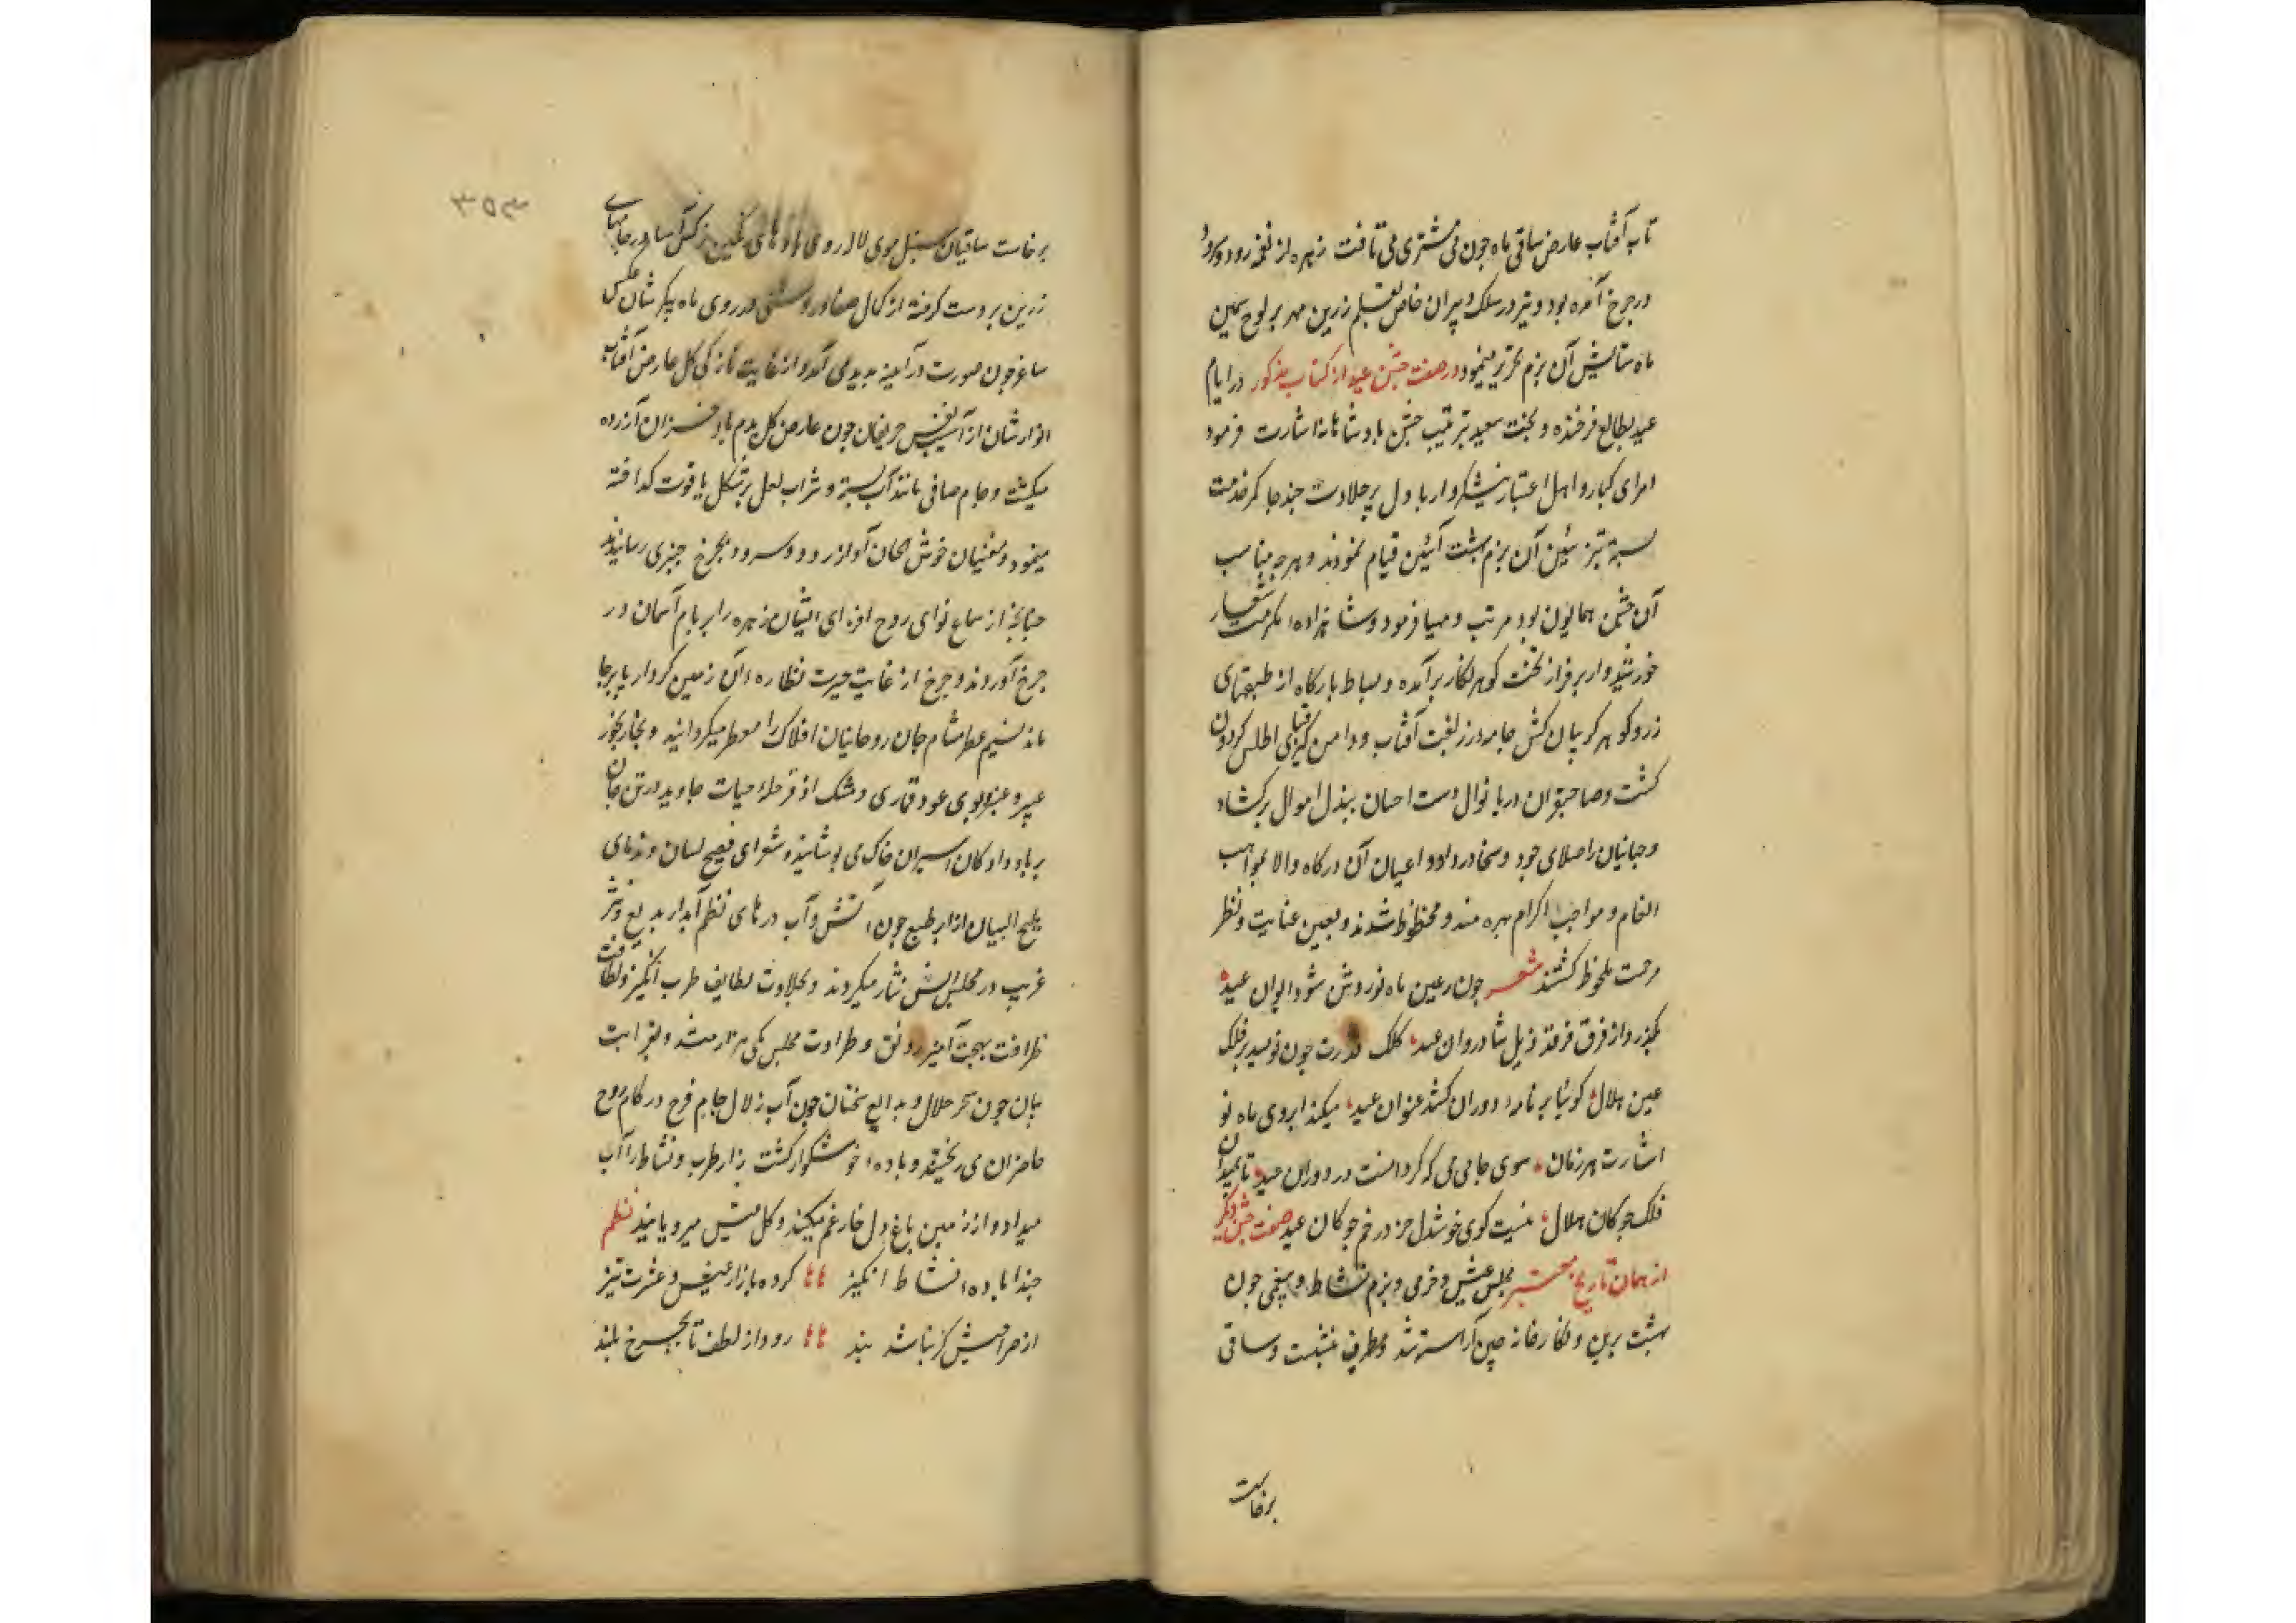 تاب آفتاب عارض ساقی ماه جون می مشتری می تافت زهره از نغمه رود و سرود
در جرخ آمده بود و تیر در سلک دبیران خاص بقلم زرین مهر بر لوح سیمین
ماه ستایش آن بزم تحریر مینمود در صفت جشن عید از کتاب مذکور در ایام
عید بطالع فرخنده و بخت سعید بترتیب جشن بادشاهانه اشارت فرمود
امرای کبار و اهل اعتبار نیشکروار با دل پر حلاوت جند جا کمر خدمت
بسته بتزئین آن بزم بهشت آئین قیام نمودند و هرجه مناسب
آن جشن همایون بود مرتب و مهیا فرمود و شاهزادهٔ مکرمت شعار
خورشیدوار بر فراز تخت کوهر نکار برآمده و بساط بارکاه از طبقهای
زر و کوهر کریبان کش جامه زربفت آفتاب و دامن کیر قبای اطلس کردون
کشت و صاحبقران دریا نوال دست احسان ببذل اموال برکشاد
و جهانیان را صلای جود و سخا در داد و اعیان آن درکاه والا بمواهب
انعام و مواجب اکرام بهره مند و محظوظ شدند و بعین عنایت و نظر
مرحمت ملحوظ کشتند شعر جون ز عین ماه نو روشن شود ایوان عید
بکذرد از فرق فرقد ذیل شادروان عید کلک قدرت جون نویسد بر فلک
عین هلال کوئیا بر نامهٔ دوران کشد عنوان عید میکند ابروی ماه نو
اشارت هر زمان سوی جامی می که کردانست در دوران عید تا بمیدان
فلک جوکان هلال نیست کوی خوشدل جز در خم جوکان عید صفت جشن دیکر
از همان تاریخ مجلس عیش و خرمی و بزم نشاط و بیغمی جون
بهشت برین و نکارخانه جین آراسته شد و مطرب بنشست و ساقی
برخاست
۳۵۳
برخاست ساقیان سنبل موی لاله روی جامهای
زرین بر دست کرفته از کمال صفا و روشنی در روی ماه پیکرشان عکس
ساغر جون صورت در آینه بدید می آمد و از غایت نازکی کل عارض آفتاب
انوارشان از آسیب نفس حریفان جون عارض کل بدم باد خزان آزرده
میکشت و جام صافی مانند آب بسته و شراب لعل بر شکل یاقوت کداخته
مینمود و مغنیان خوش الحان آواز رود و سرود بجرخ جنبری رسانیدند
جنانجه از سماع نوای روح افزای ایشان زهره را بر بام آسمان در
جرخ آوردند و جرخ از غایت حیرت نظارهٔ آن زمین کردار پا برجا
ماند نسیم عطر مشام جان روحانیان افلاک را معطر میکردانید و بخار بخور
عبیر و عنبر و بوی عود قماری و مشک اذفر حلهٔ حیات جاوید در تن جان
بر باد دادکان اسیران خاک می پوشانید و شعرای فصیح لسان و ندمای
ملیح البیان از ابر طبع جون آتش و آب درهای نظم آبدار بدیع و نثر
غریب در مجلس انس نثار میکردند و بحلاوت لطایف طرب انکیز و لطافت
ظرافت بهجت آمیز رونق و طراوت مجلس یکی هزار شد و بغرابت
بیان جون سحر حلال و بدایع سخنان جون آب زلال جام فرح در کام روح
حاضران می ریختند و بادهٔ خوشکوار کشت زار طرب و نشاط را آب
میداد و از زمین باغ دل خار غم میکند و کل عیش میرویانید نظم
حبذا بادهٔ نشاط انکیز کرده بازار عیش و عشرت تیز
از صراحیش کر نباشد بند رود از لطف تا بجرخ بلند